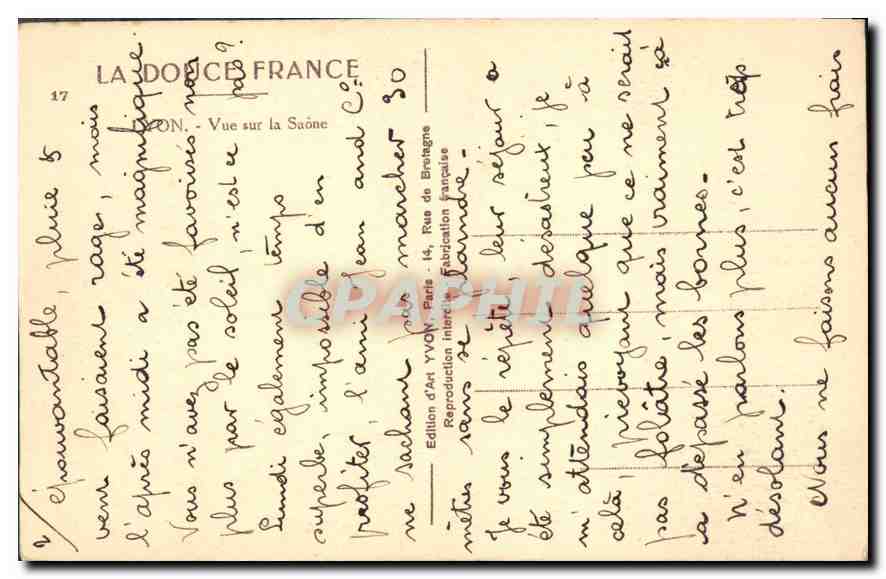 17
LA DOUCE FRANCE
LYON. - Vue sur la Saône
Edition d'Art YVON, Paris - 14, Rue de Bretagne
Reproduction interdite Fabrication française
CPAPHIL
2/ épouvantable, pluie &
vent faisaient rage, mais
l'après midi a été magnifique.
Vous n'avez pas été favorisés non
plus par le soleil, n'est ce pas ?
Lundi également temps
superbe, impossible d'en
profiter, l'ami Jean and C°
ne sachant pas marcher 30
mètres sans se plaindre.
Je vous le répète, leur séjour a
été simplement désastreux, je
m'attendais quelque peu à
cela, prévoyant que ce ne serait
pas folâtre, mais vraiment çà
a dépassé les bornes.
N'en parlons plus, c'est trop
désolant.
Nous ne faisons aucun frais